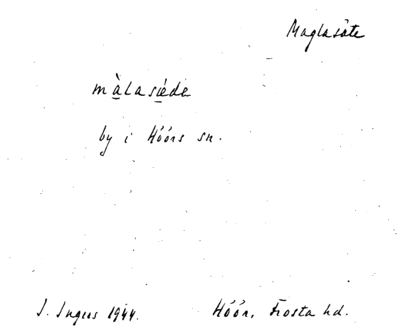 Maglasäte
màlasiede
by i Höörs sn.
J. Ingers 1944. Höör, Frosta hd.